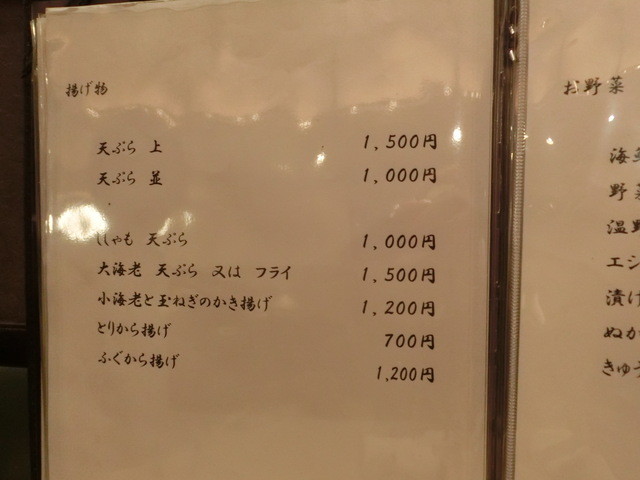 揚げ物
天ぷら 上 1,500円
天ぷら 並 1,000円
ししゃも 天ぷら 1,000円
大海老 天ぷら 又は フライ 1,500円
小海老と玉ねぎのかき揚げ 1,200円
とりから揚げ 700円
ふぐから揚げ 1,200円
お野菜
海
野菜
温野
エシ
漬け
ぬか
きゅう